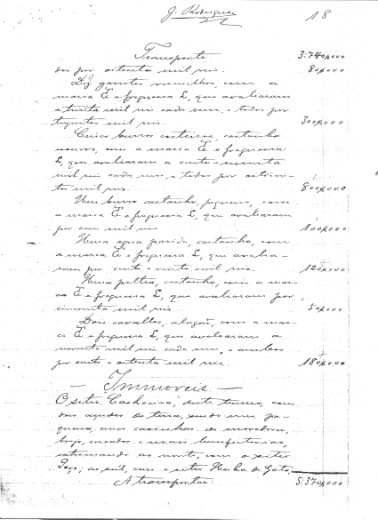 J. Rodrigues 18
Transporte 3:740,000
dos por oitenta mil reis. 80,000
Dez garrotes vermelhos, com a
marca E e freguesia L, que avaliaram
a trinta mil cada um, e todos por
trezentos mil reis. 300,000
Cinco burros costeiros, castanho
escuros, com a marca E e freguesia
L, que avaliaram a cento e sessenta
mil reis cada um, e todos por oitocen-
tos mil reis. 800,000
Um burro castanho, pequeno, com
a marca E e freguesia L, que avaliaram
por cem mil reis 100,000
Uma egua parida, castanha, com
a marca E e freguesia L, que avalia-
ram por cento e vinte mil reis. 120,000
Uma poltra, castanha, com a mar-
ca E e freguesia L, que avaliaram por
cincoenta mil reis 50,000
Dois cavallos, alazão, com a mar-
ca E e freguesia L, que avaliaram a
noventa mil reis cada um, e ambos
por cento e oitenta mil reis. 180,000
— Immoveis —
O sitio Cachoeira, deste termo, com
dois açudes de terra, sendo um
cinco casinhas de moradores,
e mais bemfeitorias,
extremando ao norte, com o sitio
ao sul, com o sitio Unha de Gato,
A transportar 5:370,000